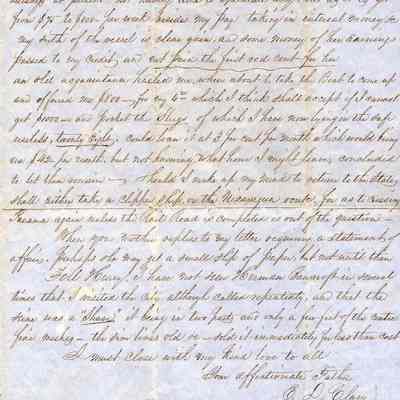 from $75 to $100 per week besides my pay, taking in interest money &
my sixth of the vessel is clear gain, and some money of her earnings
passed to my credit, and not paid the first red cent for her
an old acquaintance hailed me, when about to take the Boat to come up
and offered me $800 – for my 6th which I think shall accept if I cannot
get $1000 – and pocket the Slugs of which I have now lying in the safe
useless, twenty Eight, could loan it at 3 per cent per month which would bring
me $42 per month, but not knowing what hour I might leave, concluded
to let them remain – Should I make up my mind to return to the States,
shall either take a Clipper Ship, or the Nicaragua route, for as to crossing
Panama again unless the Rail Road is completed is out of the question –
When your mother replies to my letter requiring a statement of
affairs, perhaps she may get a small slip of paper, but not until then
Tell Henry, I have not seen Herman Bancroft in several
times that I visited the City although called repeatedly, and that the
seine was a "Shave" it being in two parts and only a few feet of the centre
fine meshes – the iron lines old so – sold it immediately for less than cost
I must close with my kind love to all
Your affectionate Father